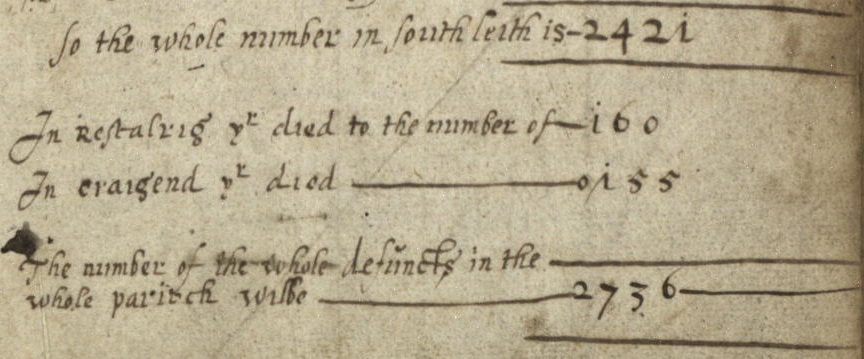 So the whole number in south leith is-2421
In Restalrig yr died to the number of-160
In craigend yr died 0155
The number of the whole defuncts in the
whole parisch wilbe 2736